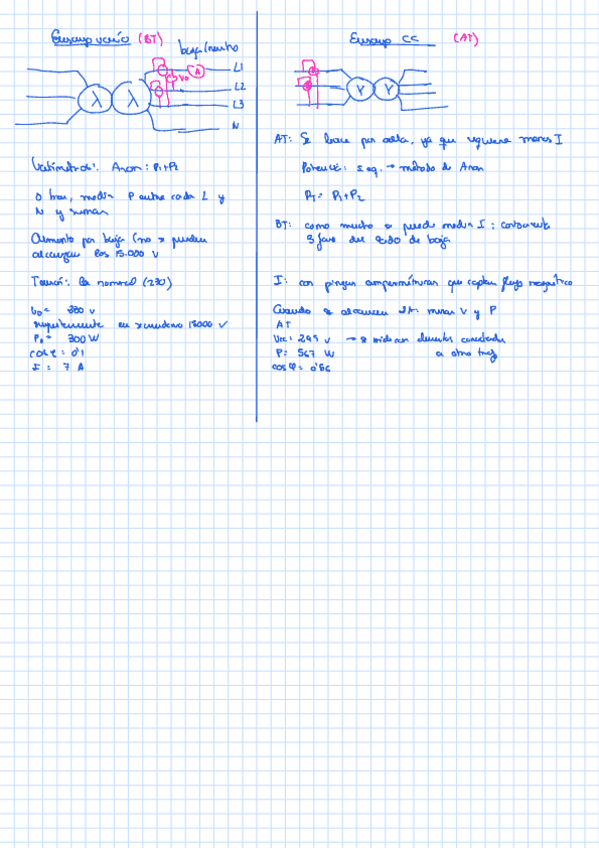 Ensayo vacío (BT)
baja/neutro
L1
A
V0
L2
λ λ
L3
N
Vatímetros: Aron: P1+P2
O bien, medir P entre cada L y
N y sumar
Alimento por baja (no se pueden
alcanzar los 15.000 V
Tensión: la nominal (230)
V0= 380 V
en secundario 15000 V
P0= 300 W
cos φ: 0'1
I: 7 A
Ensayo CC (AT)
Y Y
AT: Se hace por alta, ya que requiere menos I
Potencia: seq. → método de Aron
PT= P1+P2
BT: como mucho se puede medir I: cortocircuito
3 fases del lado de baja
I: con pinzas amperimétricas que captan flujo magnético
Cuando se alcancen mirar V y P
AT
Vcc: 249 V → se midieron elementos conectados
P: 567 W a otro trafo
cos φ= 0'86